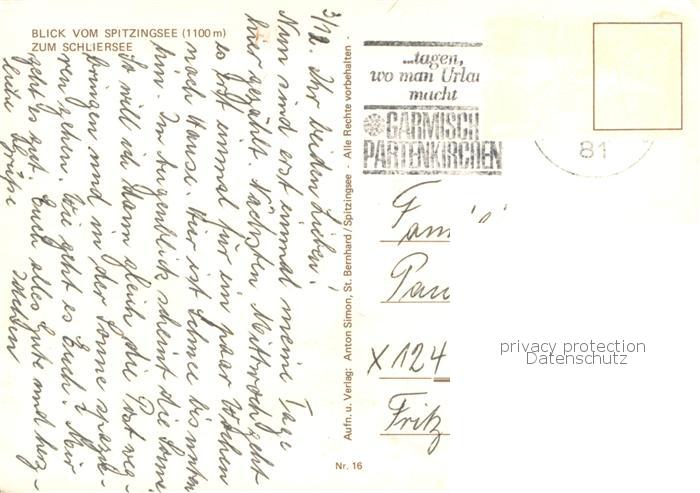 BLICK VOM SPITZINGSEE (1100 m)
ZUM SCHLIERSEE
3/12. Ihr beiden Lieben!
Nun sind erst einmal meine Tage
hier gezählt. Nächsten Mittwoch geht
es erst einmal für ein paar Wochen
nach Hause. Hier ist Schnee bis unten
hin. Im Augenblick scheint die Sonne
So will ich dann gleich die Post weg-
bringen und in der Sonne spazie-
ren gehen. Wie geht es Euch? Mir
geht es gut. Euch alles Gute und herz-
liche Grüße
Aufn. u. Verlag: Anton Simon, St. Bernhard/Spitzingsee - Alle Rechte vorbehalten -
Nr. 16
...tagen,
wo man Urlau
macht
GARMISCH
PARTENKIRCHEN
81
Fam
Pau
X124
Fritz
privacy protection
Datenschutz